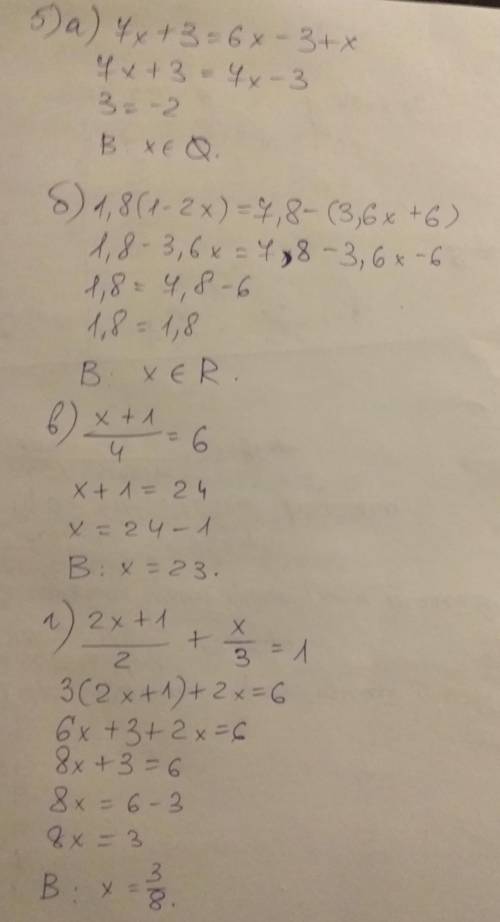 5) а) 7x + 3 = 6x - 3 + x
7x + 3 = 7x - 3
3 = -2
В: x ∈ Ø.
б) 1,8(1 - 2x) = 7,8 - (3,6x + 6)
1,8 - 3,6x = 7,8 - 3,6x - 6
1,8 = 7,8 - 6
1,8 = 1,8
В: x ∈ R.
в) (x + 1)/4 = 6
x + 1 = 24
x = 24 - 1
В: x = 23.
г) (2x + 1)/2 + x/3 = 1
3(2x + 1) + 2x = 6
6x + 3 + 2x = 6
8x + 3 = 6
8x = 6 - 3
8x = 3
В: x = 3/8.